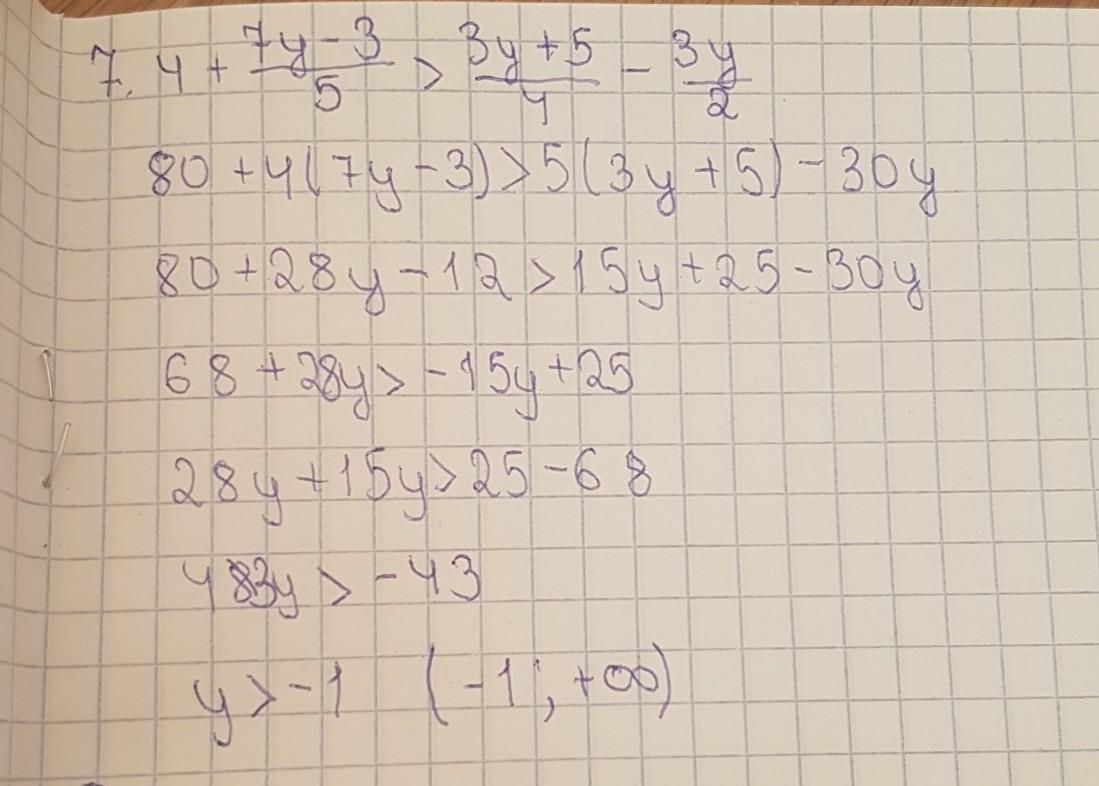 7. 4 + (7y-3)/5 > (3y+5)/4 - 3y/2
80+4(7y-3)>5(3y+5)-30y
80+28y-12>15y+25-30y
68+28y>-15y+25
28y+15y>25-68
43y>-43
y>-1 (-1; +∞)